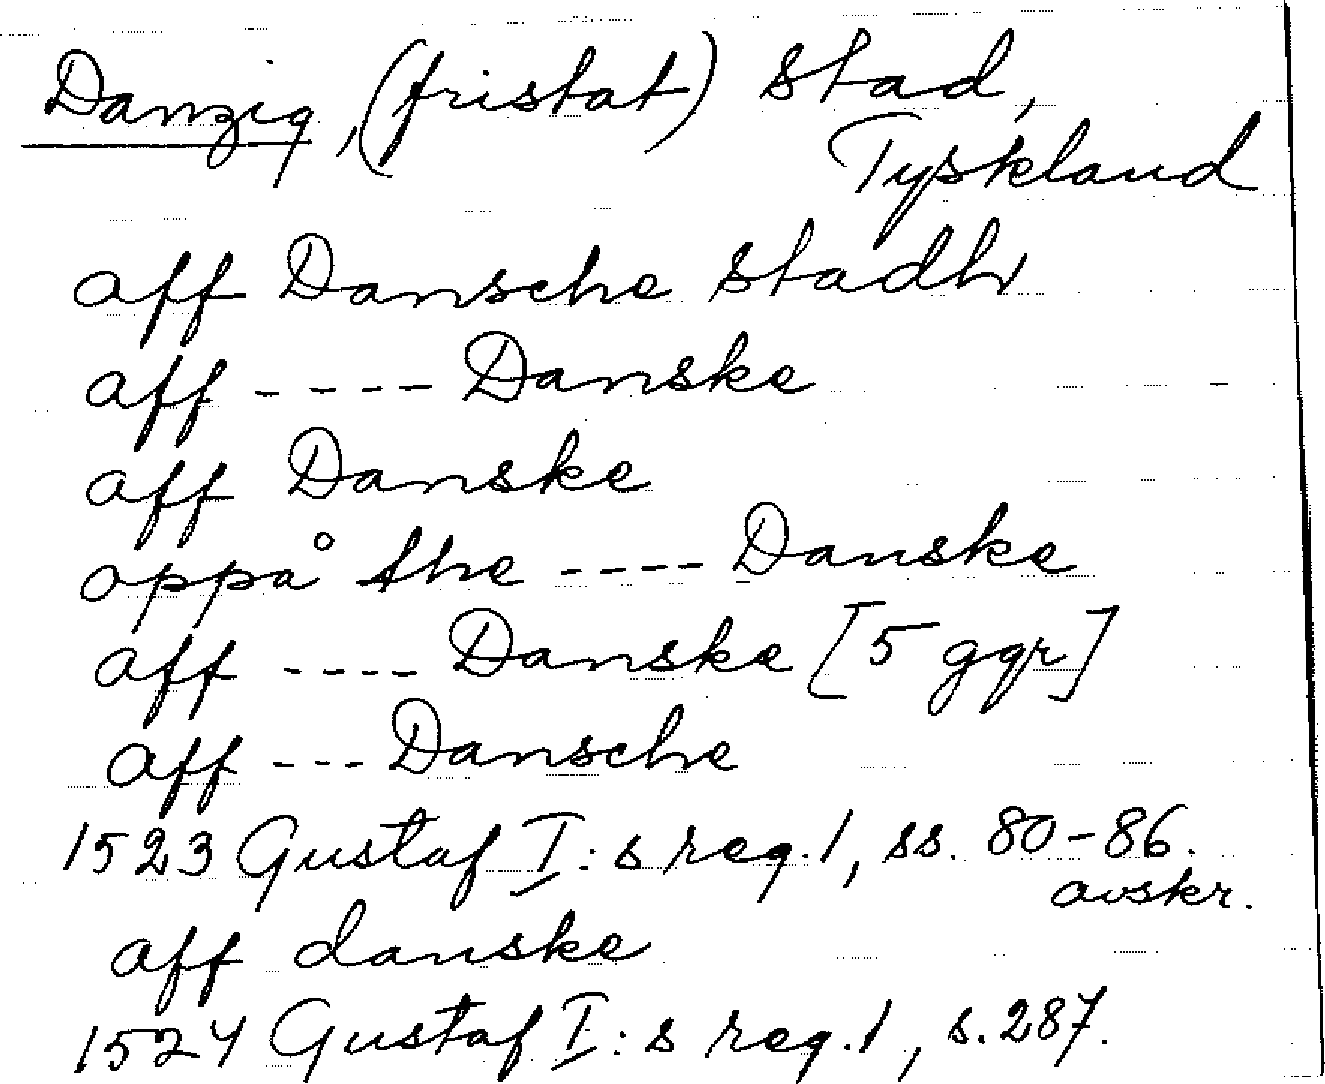 Danzig, (fristat) stad,
Tyskland
aff Dansche stadh
aff ---- Danske
aff Danske
oppå the ---- Danske
aff ---- Danske [5 ggr]
aff --- Dansche
1523 Gustaf I:s reg. 1, ss. 80-86.
avskr.
aff danske
1524 Gustaf I:s reg. 1, s. 287.